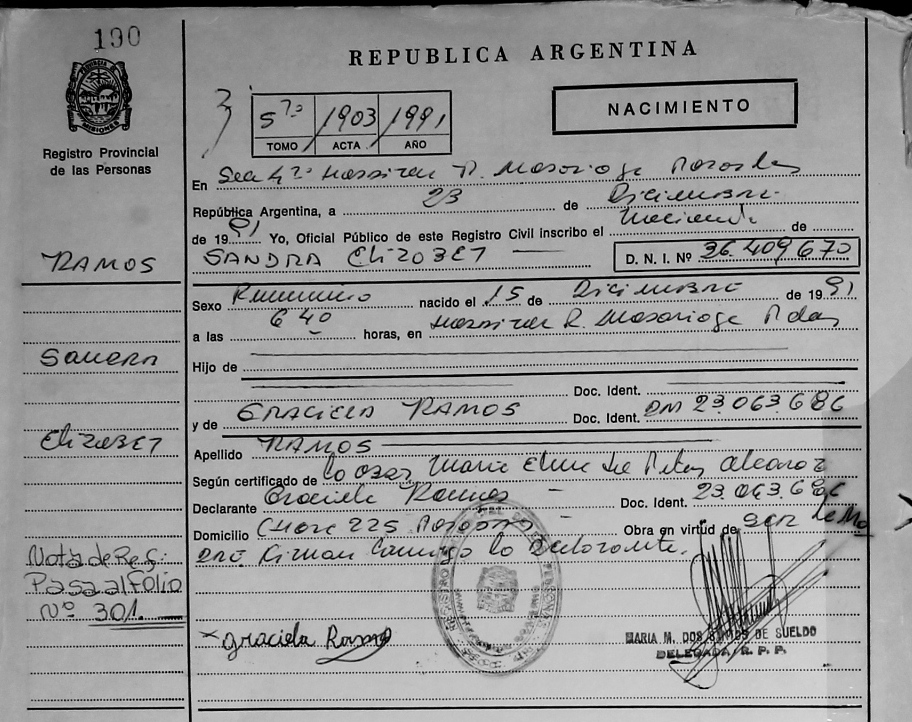 190
REPUBLICA ARGENTINA
PROVINCIA DE MISIONES
Registro Provincial
de las Personas
5º 1903 1991
TOMO ACTA AÑO
NACIMIENTO
En
República Argentina, a 23 de Diciembre
de 1991 Yo, Oficial Público de este Registro Civil inscribo el Nacimiento de
SANDRA ElizaBET D. N. I. Nº 36.409.670
RAMOS
Sexo Femenino nacido el 15 de Diciembre de 1991
a las 6 40 horas, en
SANDRA
Hijo de
Doc. Ident.
y de GRACIELA RAMOS Doc. Ident. DNI 23.063.686
ElizaBET
Apellido RAMOS
Según certificado de la Obst. Maria
Declarante Graciela Ramos Doc. Ident. 23.063.686
Domicilio 225 Posadas Obra en virtud de ser la Ma
dre. Firman la Declarante.
Nota de Ref:
Pasa al Folio
Nº 301.
x Graciela Ramos
MARIA M. DOS SANTOS DE SUELDO
DELEGADA R. P. P.